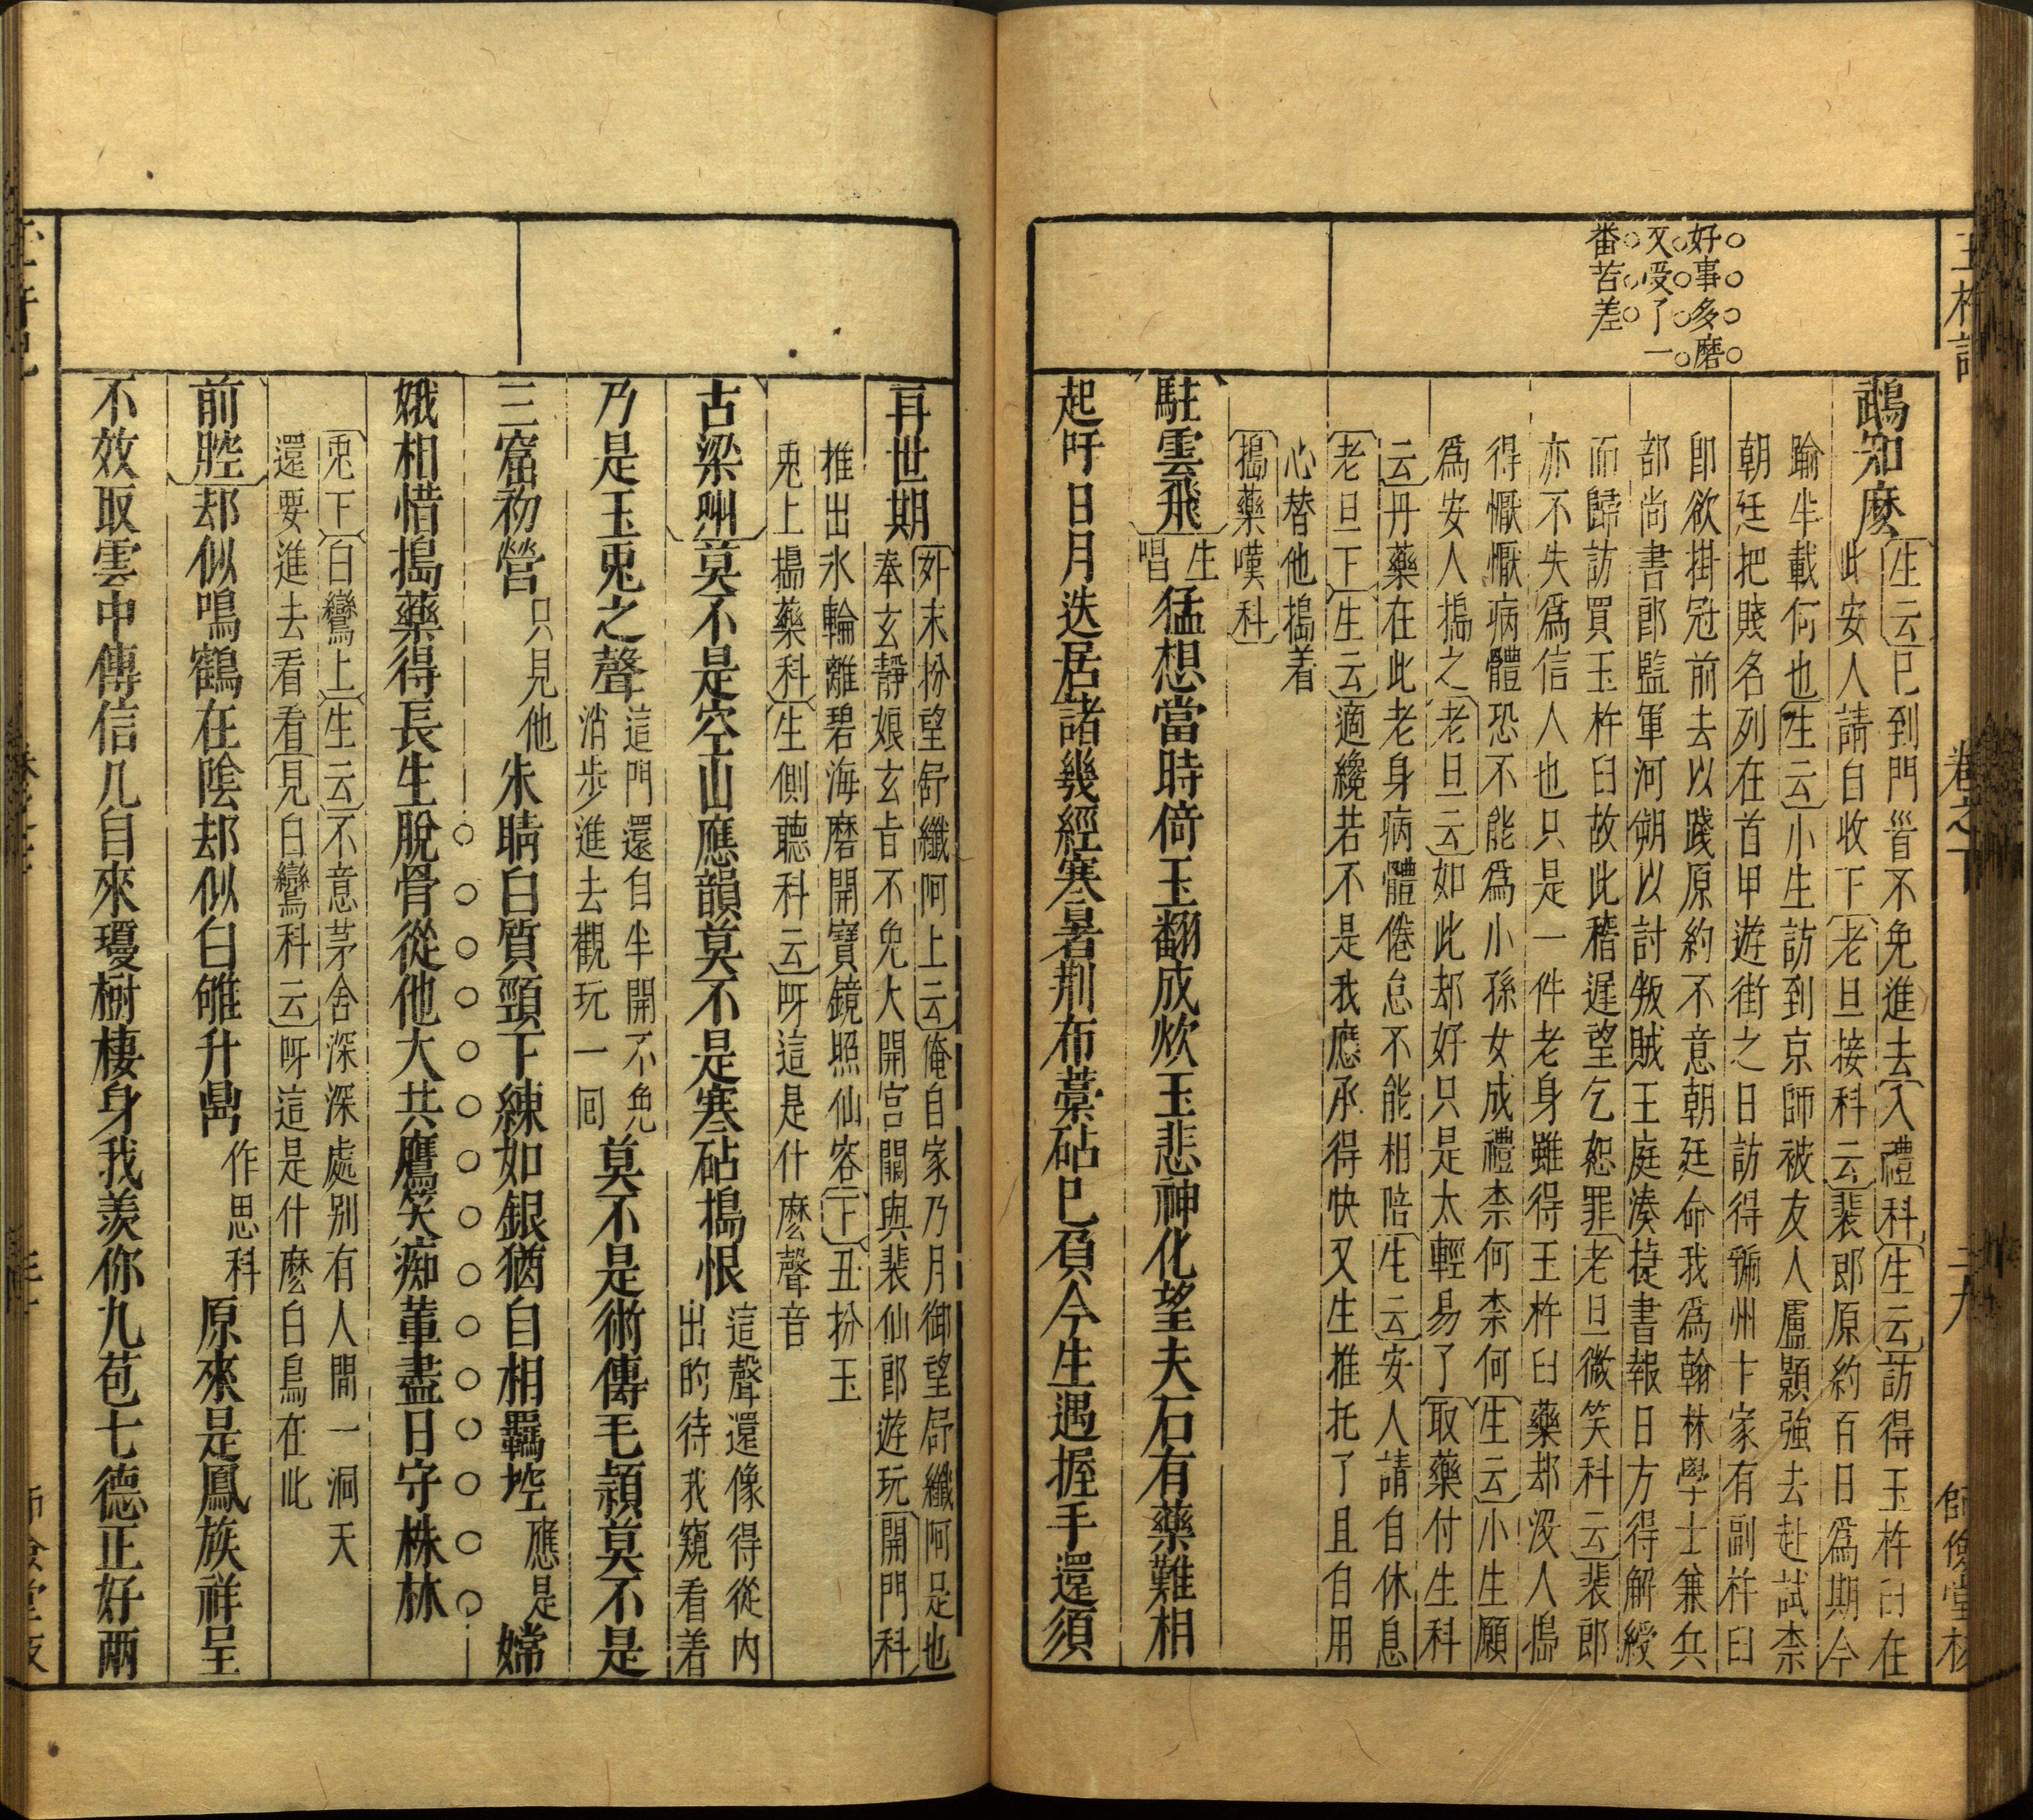 好事多磨
又受了一
番苦差
鵡知麽〔生云〕已到門首不免進去〔入禮科〕〔生云〕訪得玉杵臼在
此安人請自收下〔老旦接科云〕裴郎原約百日爲期今
踰半載何也〔生云〕小生訪到京師被友人盧顥強去赴試柰
朝廷把賤名列在首甲遊街之日訪得虢州卞家有副杵臼
即欲掛冠前去以踐原約不意朝廷命我爲翰林學士兼兵
部尚書郎監軍河朔以討叛賊王庭湊㨗書報日方得解綬
而歸訪買玉杵臼故此稽遲望乞恕罪〔老旦微笑科云〕裴郎
亦不失爲信人也只是一件老身雖得玉杵臼藥却沒人搗
得懨懨病體恐不能爲小孫女成禮柰何柰何〔生云〕小生願
爲安人搗之〔老旦云〕如此却好只是太輕易了〔取藥付生科
云〕丹藥在此老身病體倦怠不能相陪〔生云〕安人請自休息
〔老旦下〕〔生云〕適纔若不是我應承得快又生推托了且自用
心替他搗着
〔搗藥嘆科〕
駐雲飛〔生唱〕猛想當時倚玉翻成炊玉悲神化望夫石有藥難相
起吁日月迭居諸幾經寒暑荆布藁砧已負今生遇握手還須
再世期〔外末扮望舒纖阿上云〕俺自家乃月御望舒纖阿是也
奉玄靜娘玄旨不免大開宮闕與裴仙郎遊玩〔開門科
推出氷輪離碧海磨開寶鏡照仙容〔下〕丑扮玉
兎上搗藥科〔生側聽科云〕呀這是什麽聲音
古梁州〕莫不是空山應韻莫不是寒砧搗恨這聲還像得從內
出的待我窺看着
乃是玉兎之聲這門還自半開不免
消步進去觀玩一囘莫不是術傳毛頴莫不是
三窟初營只見他朱睛白質頸下練如銀猶自相羈控應是嫦
娥相惜搗藥得長生脫骨從他大共鷹笑痴董盡日守株林
〔兎下〕〔白鸞上〕〔生云〕不意茅舍深深處别有人間一洞天
還要進去看看〔見白鸞科云〕呀這是什麽白鳥在此
前腔〕却似鳴鶴在陰却似白雉升鼎作思科原來是鳳族祥呈
不效取雲中傳信几自來瓊樹棲身我羨你九苞七德正好兩